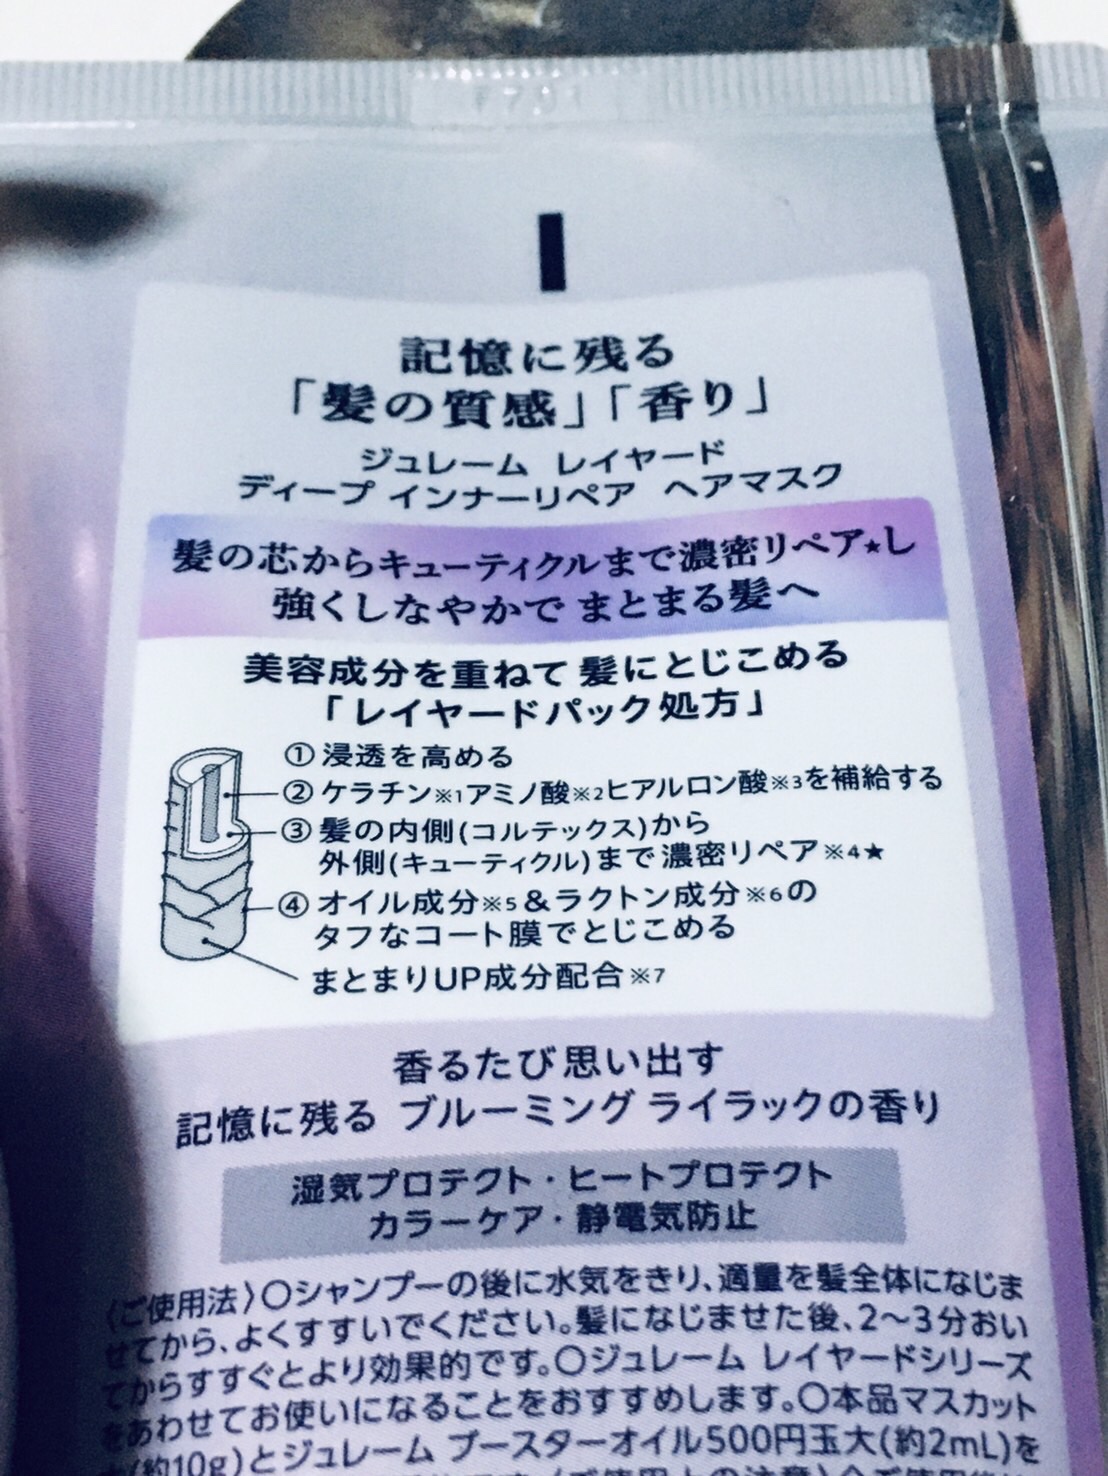 記憶に残る
「髪の質感」「香り」
ジュレーム レイヤード
ディープ インナーリペア ヘアマスク
髪の芯からキューティクルまで濃密リペア★し
強くしなやかで まとまる髪へ
美容成分を重ねて 髪にとじこめる
「レイヤードパック処方」
① 浸透を高める
② ケラチン※1アミノ酸※2ヒアルロン酸※3を補給する
③ 髪の内側(コルテックス)から
外側(キューティクル)まで濃密リペア※4★
④ オイル成分※5&ラクトン成分※6の
タフなコート膜でとじこめる
まとまりUP成分配合※7
香るたび思い出す
記憶に残る ブルーミング ライラックの香り
湿気プロテクト・ヒートプロテクト
カラーケア・静電気防止
〈ご使用法〉〇シャンプーの後に水気をきり、適量を髪全体になじま
せてから、よくすすいでください。髪になじませた後、2〜3分おい
てからすすぐとより効果的です。〇ジュレーム レイヤードシリーズ
をあわせてお使いになることをおすすめします。〇本品マスカット
大(約10g)とジュレーム ブースターオイル500円玉大(約2mL)を